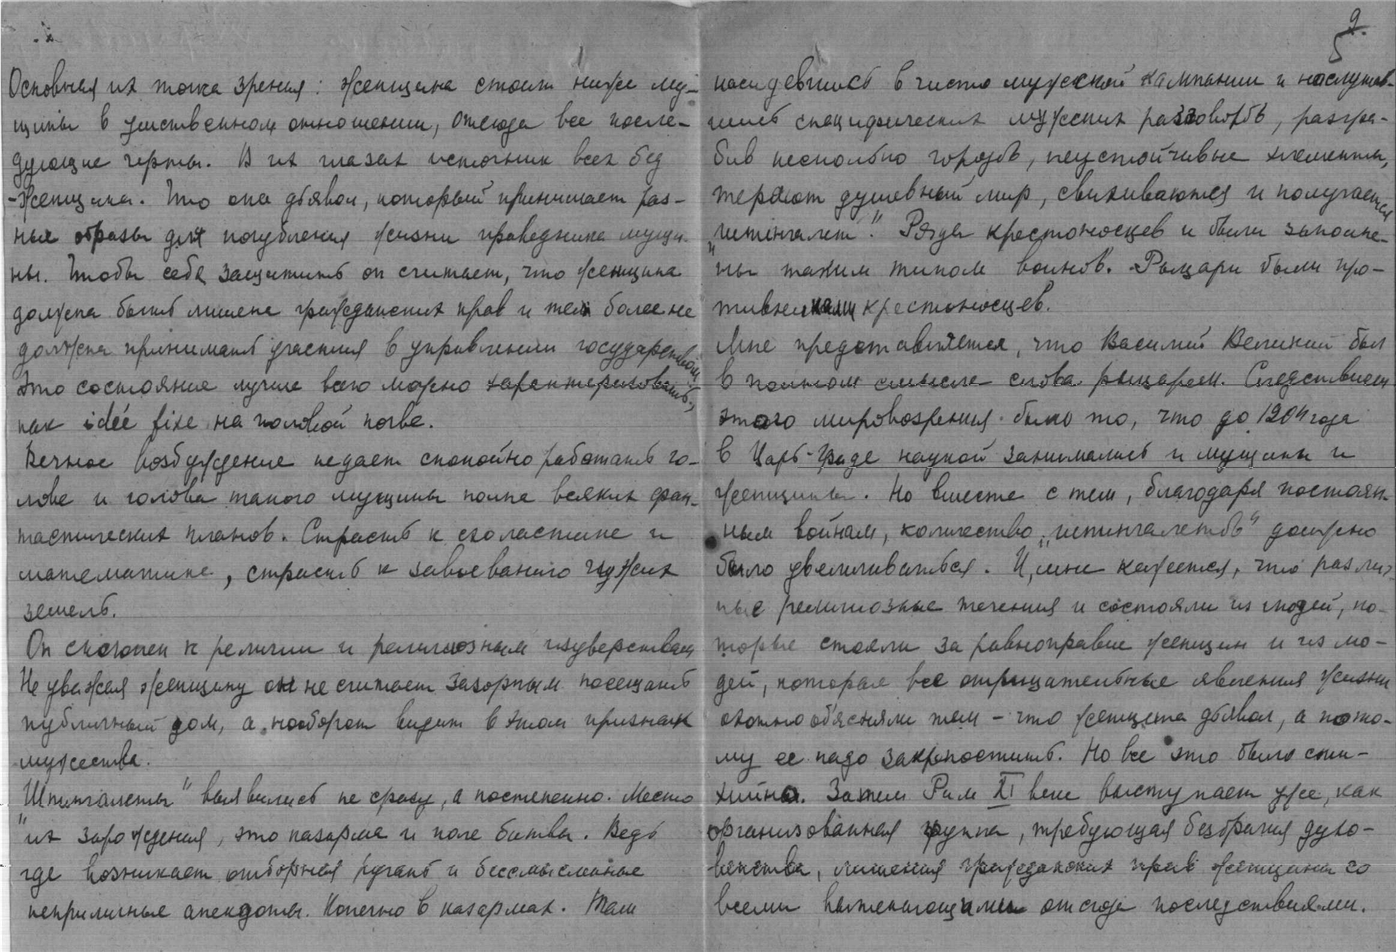 Основная их точка зрения: женщина стоит ниже му-
щины в умственном отношении, отсюда все после-
дующие черты. В их глазах источник всех бед
- женщина. Что она дьявол, который принимает раз-
ные образы для погубления жизни праведника мущи-
ны. Чтобы себя защитить он считает, что женщина
должна быть лишена гражданских прав и тем более не
должна принимать участия в управлении государством
Это состояние лучше всего можно характеризовать,
как idée fixe на половой почве.
Вечное возбуждение недает спокойно работать го-
лове и голова такого мущины полна всяких фан-
тастических планов. Страсть к схоластике и
математике, страсть к завоеванию чужих
земель.
Он склонен к религии и религиозным изуверствам
Не уважая женщину он не считает зазорным посещать
публичный дом, а наоборот видит в этом признак
мужества.
„Шпингалеты" выявились не сразу, а постепенно. Место
их зарождения, это казарма и поле битвы. Ведь
где возникает отборная ругань и бессмысленные
неприличные анекдоты. Конечно в казармах. Там
9
5
насидевшись в чисто мужской кампании и наслушав-
шись специфических мужских разговоров, разгра-
бив несколько городов, неустойчивые элементы,
теряют душевный мир, свихиваются и получается
„шпингалет". Ряды крестоносцев и были заполне-
ны таким типом воинов. Рыцари были про-
тивниками крестоносцев.
Мне представляется, что Василий Великий был
в полном смысле слова рыцарем. Следствием
этого мировозрения было то, что до 1204 года
в Царь-Граде наукой занимались и мущины и
женщины. Но вместе с тем, благодаря постоян-
ным войнам, количество „шпингалетов" должно
было увеличиваться. И, мне кажется, что различ-
ные религиозные течения и состояли из людей, ко-
торые стояли за равноправие женщин и из лю-
дей, которые все отрицательные явления жизни
охотно объясняли тем - что женщина дьявол, а пото-
му ее надо закрепостить. Но все это было сти-
хийно. Затем Рим XI веке выступает уже, как
организованная группа, требующая безбрачия духо-
венства, лишения гражданских прав женщины со
всеми вытекающими отсюда последствиями.